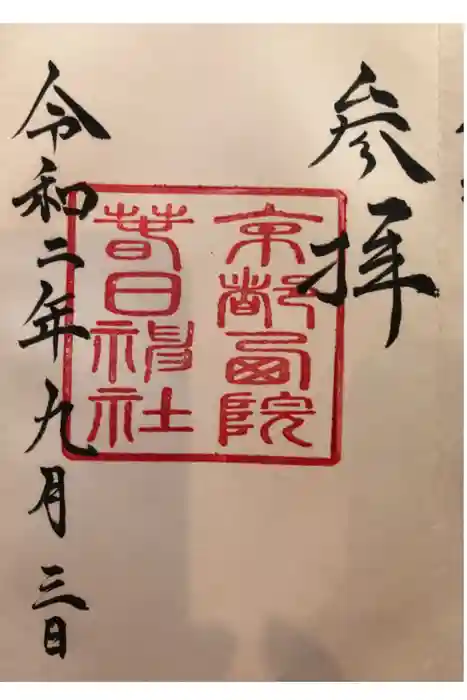 参拝
京都西院
春日神社
令和二年九月三日